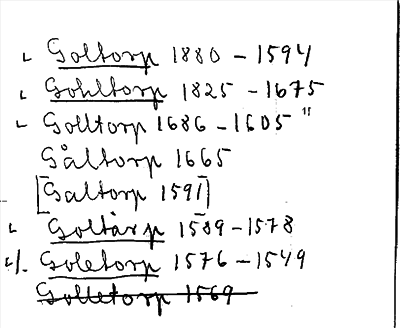 Goltorp 1880 - 1594
Gohltorp 1825 - 1675
Golltorp 1686 - 1605 "
Gåltorp 1665
[Galtorp 1591]
Goltårp 1589 - 1578
Goletorp 1576 - 1549
Golletorp 1569